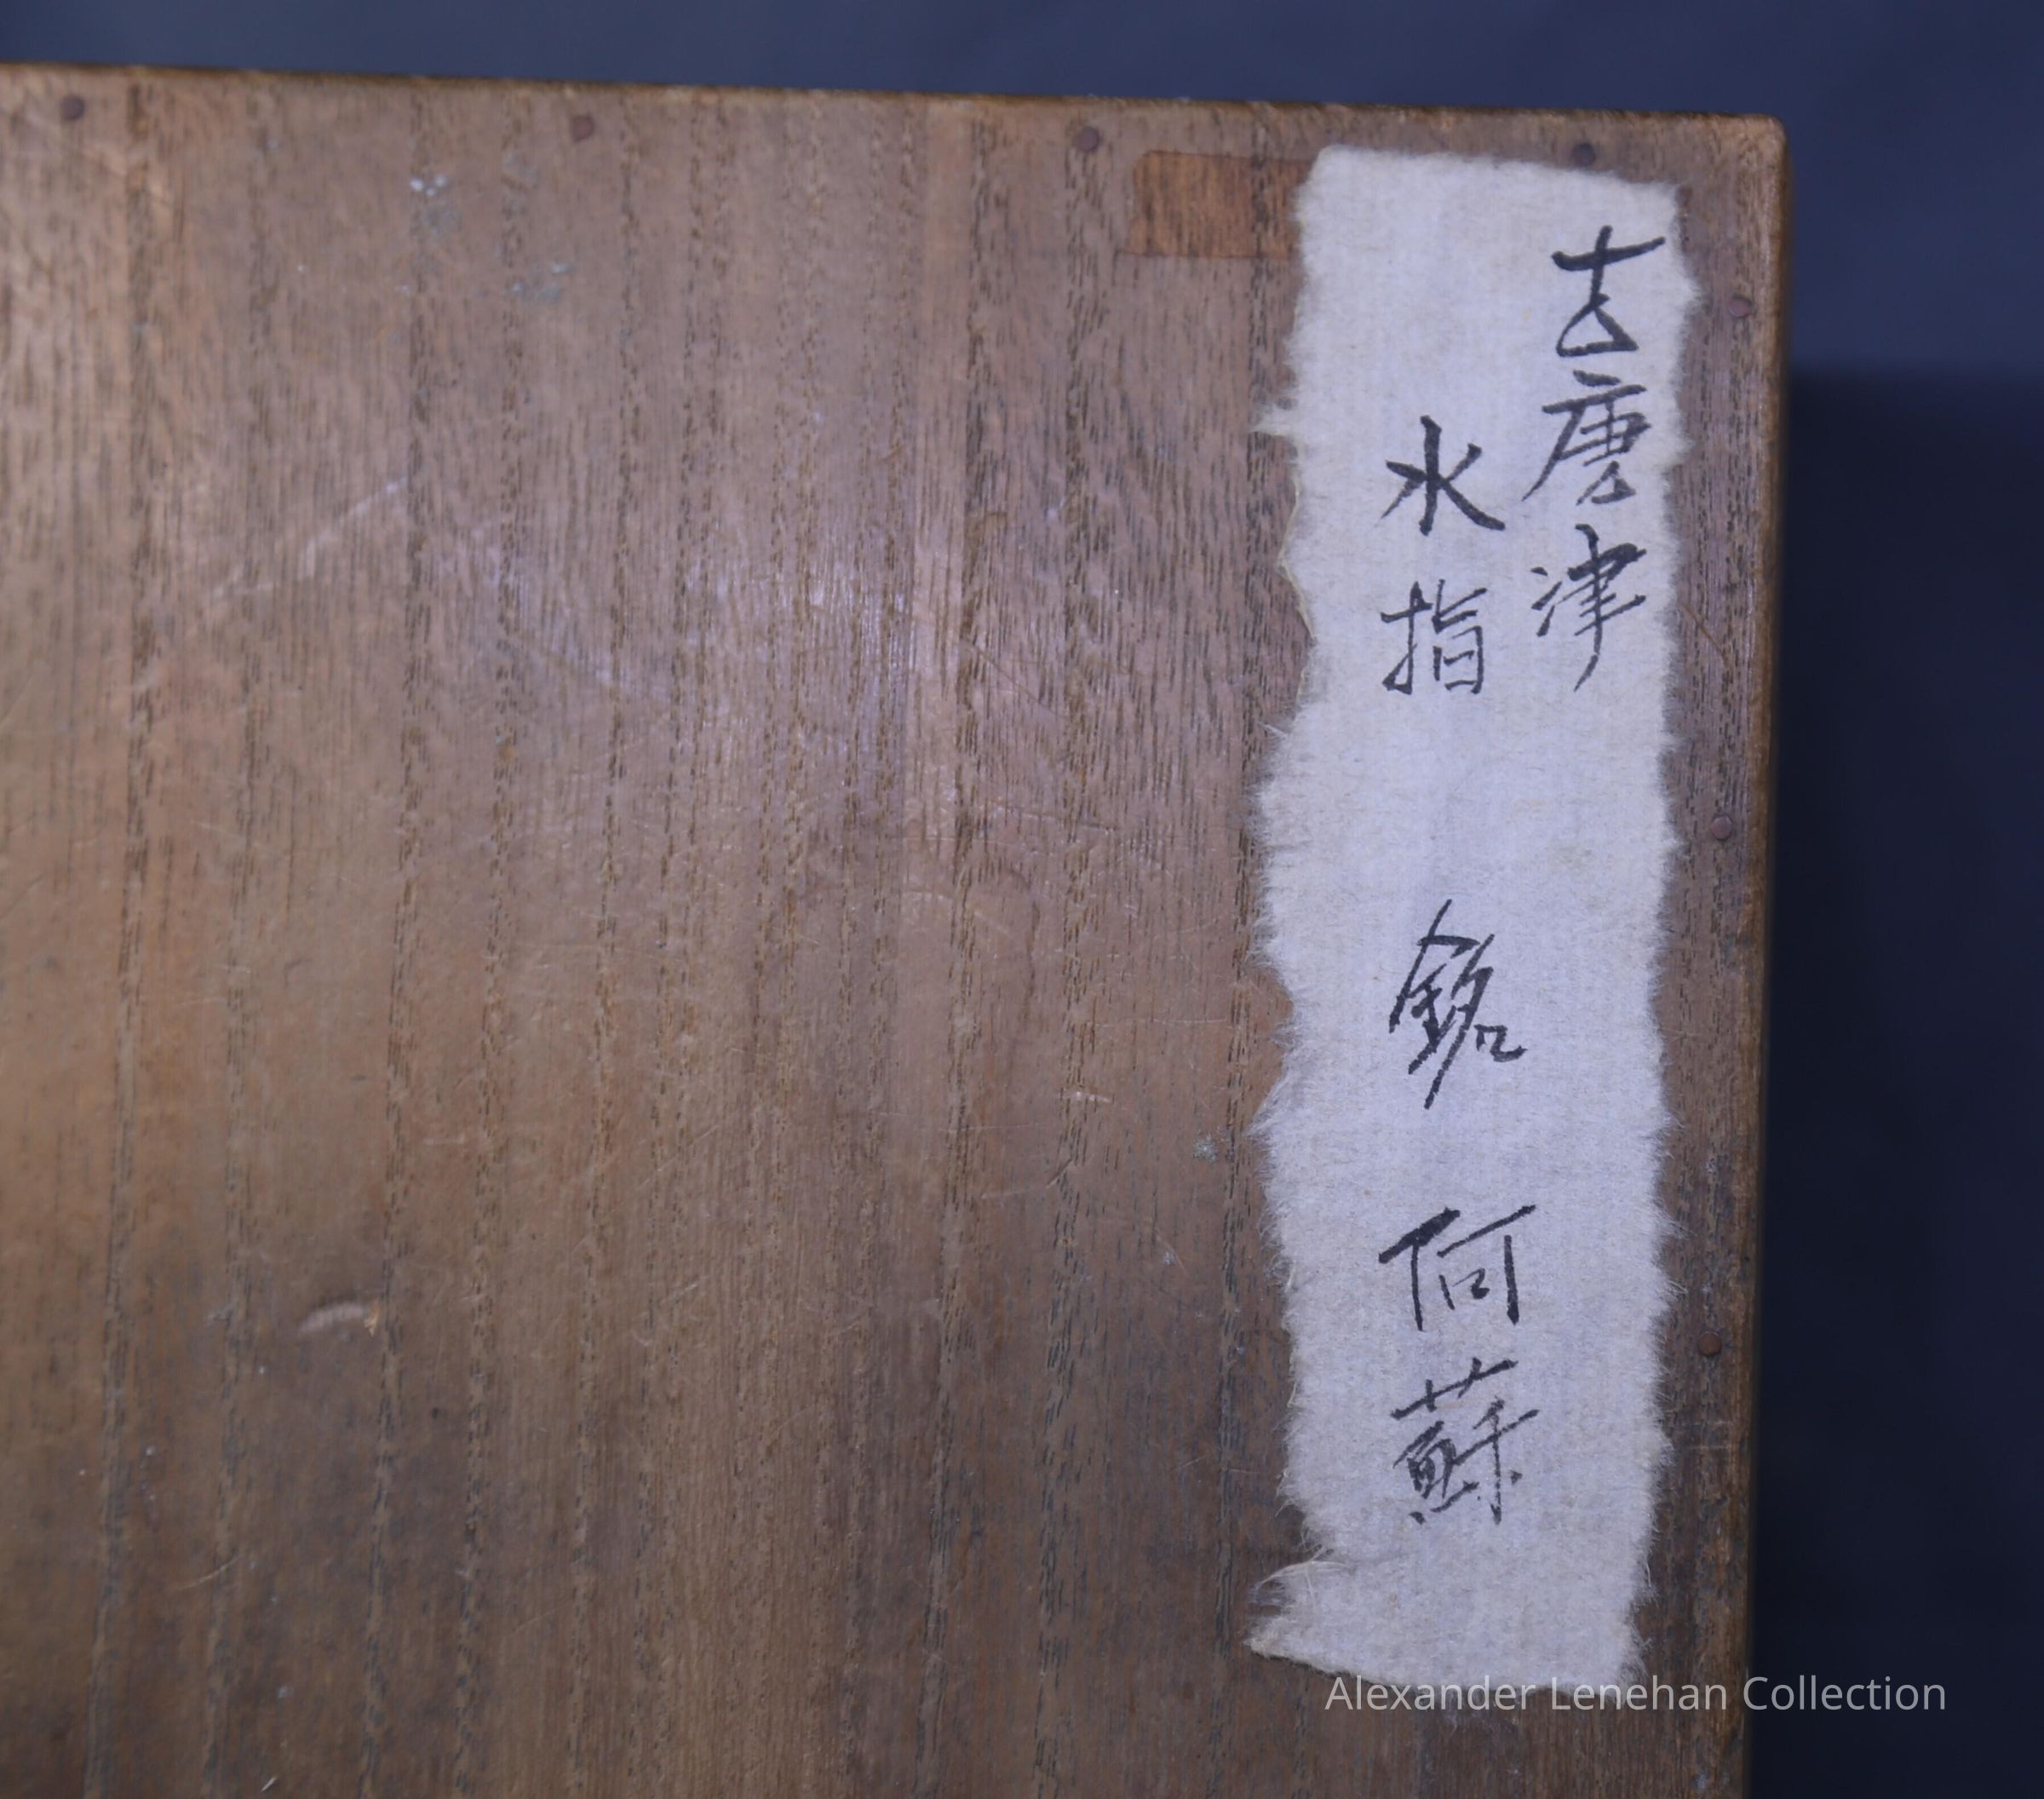 古唐津
水指 銘 阿蘇
Alexander Lenehan Collection